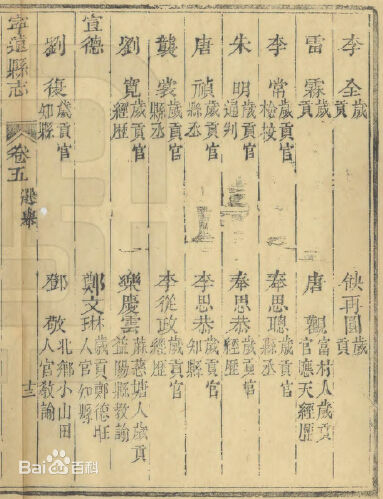 李全歲貢
鈌再圓歲貢
雷霖歲貢
唐觀富村人歲貢官應天經歷
李常歲貢官檢校
奉思聰歲貢官縣丞
朱明歲貢官通判
奉思恭歲貢官經歷
唐禎歲貢官縣丞
李思恭歲貢官知縣
龔裳歲貢官縣丞
李從政歲貢官經歷
劉寬歲貢官經歷
樂慶雲麻慈塘人歲貢益陽縣教諭
宣德
鄭文琳歲貢鄭德旺人官知縣
劉復歲貢官知縣
鄧敬北鄉小山田人官教諭
寧遠縣志
卷五
選舉
十三
Bai百科